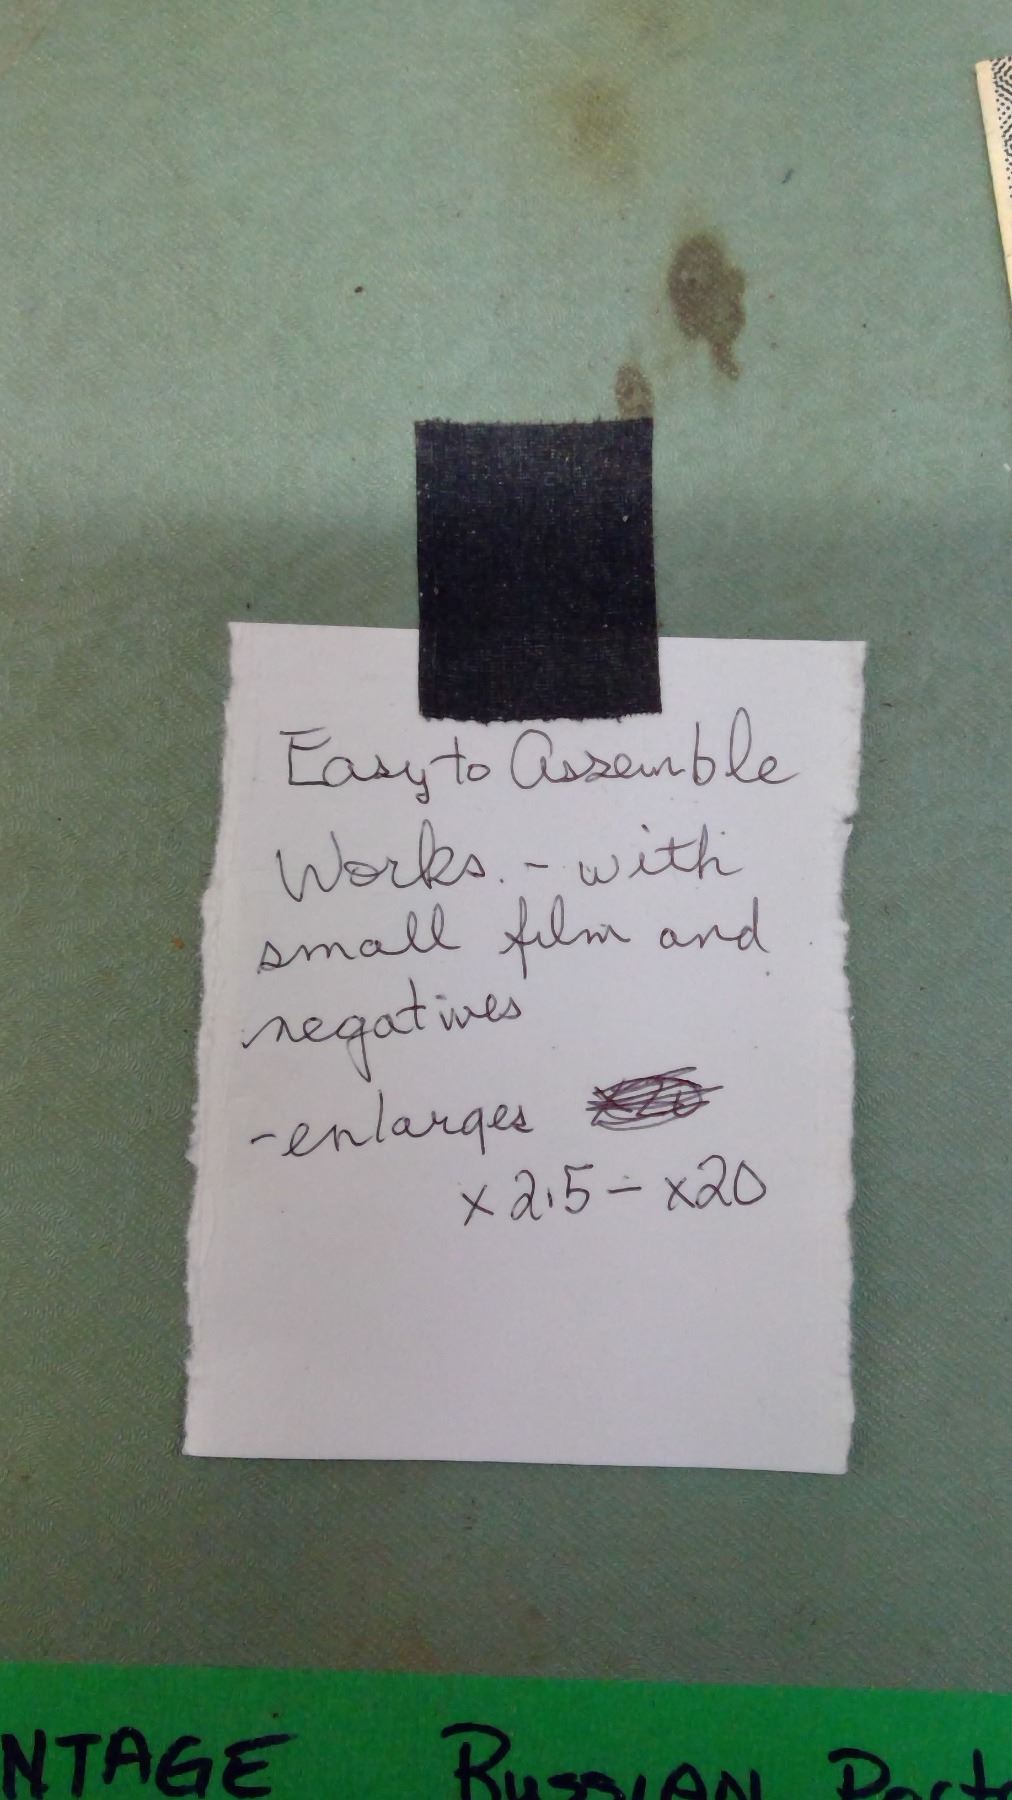 Easy to Assemble
Works. - with
small film and
negatives
- enlarges
x 2.5 - x20
NTAGE RUSSIAN Porta